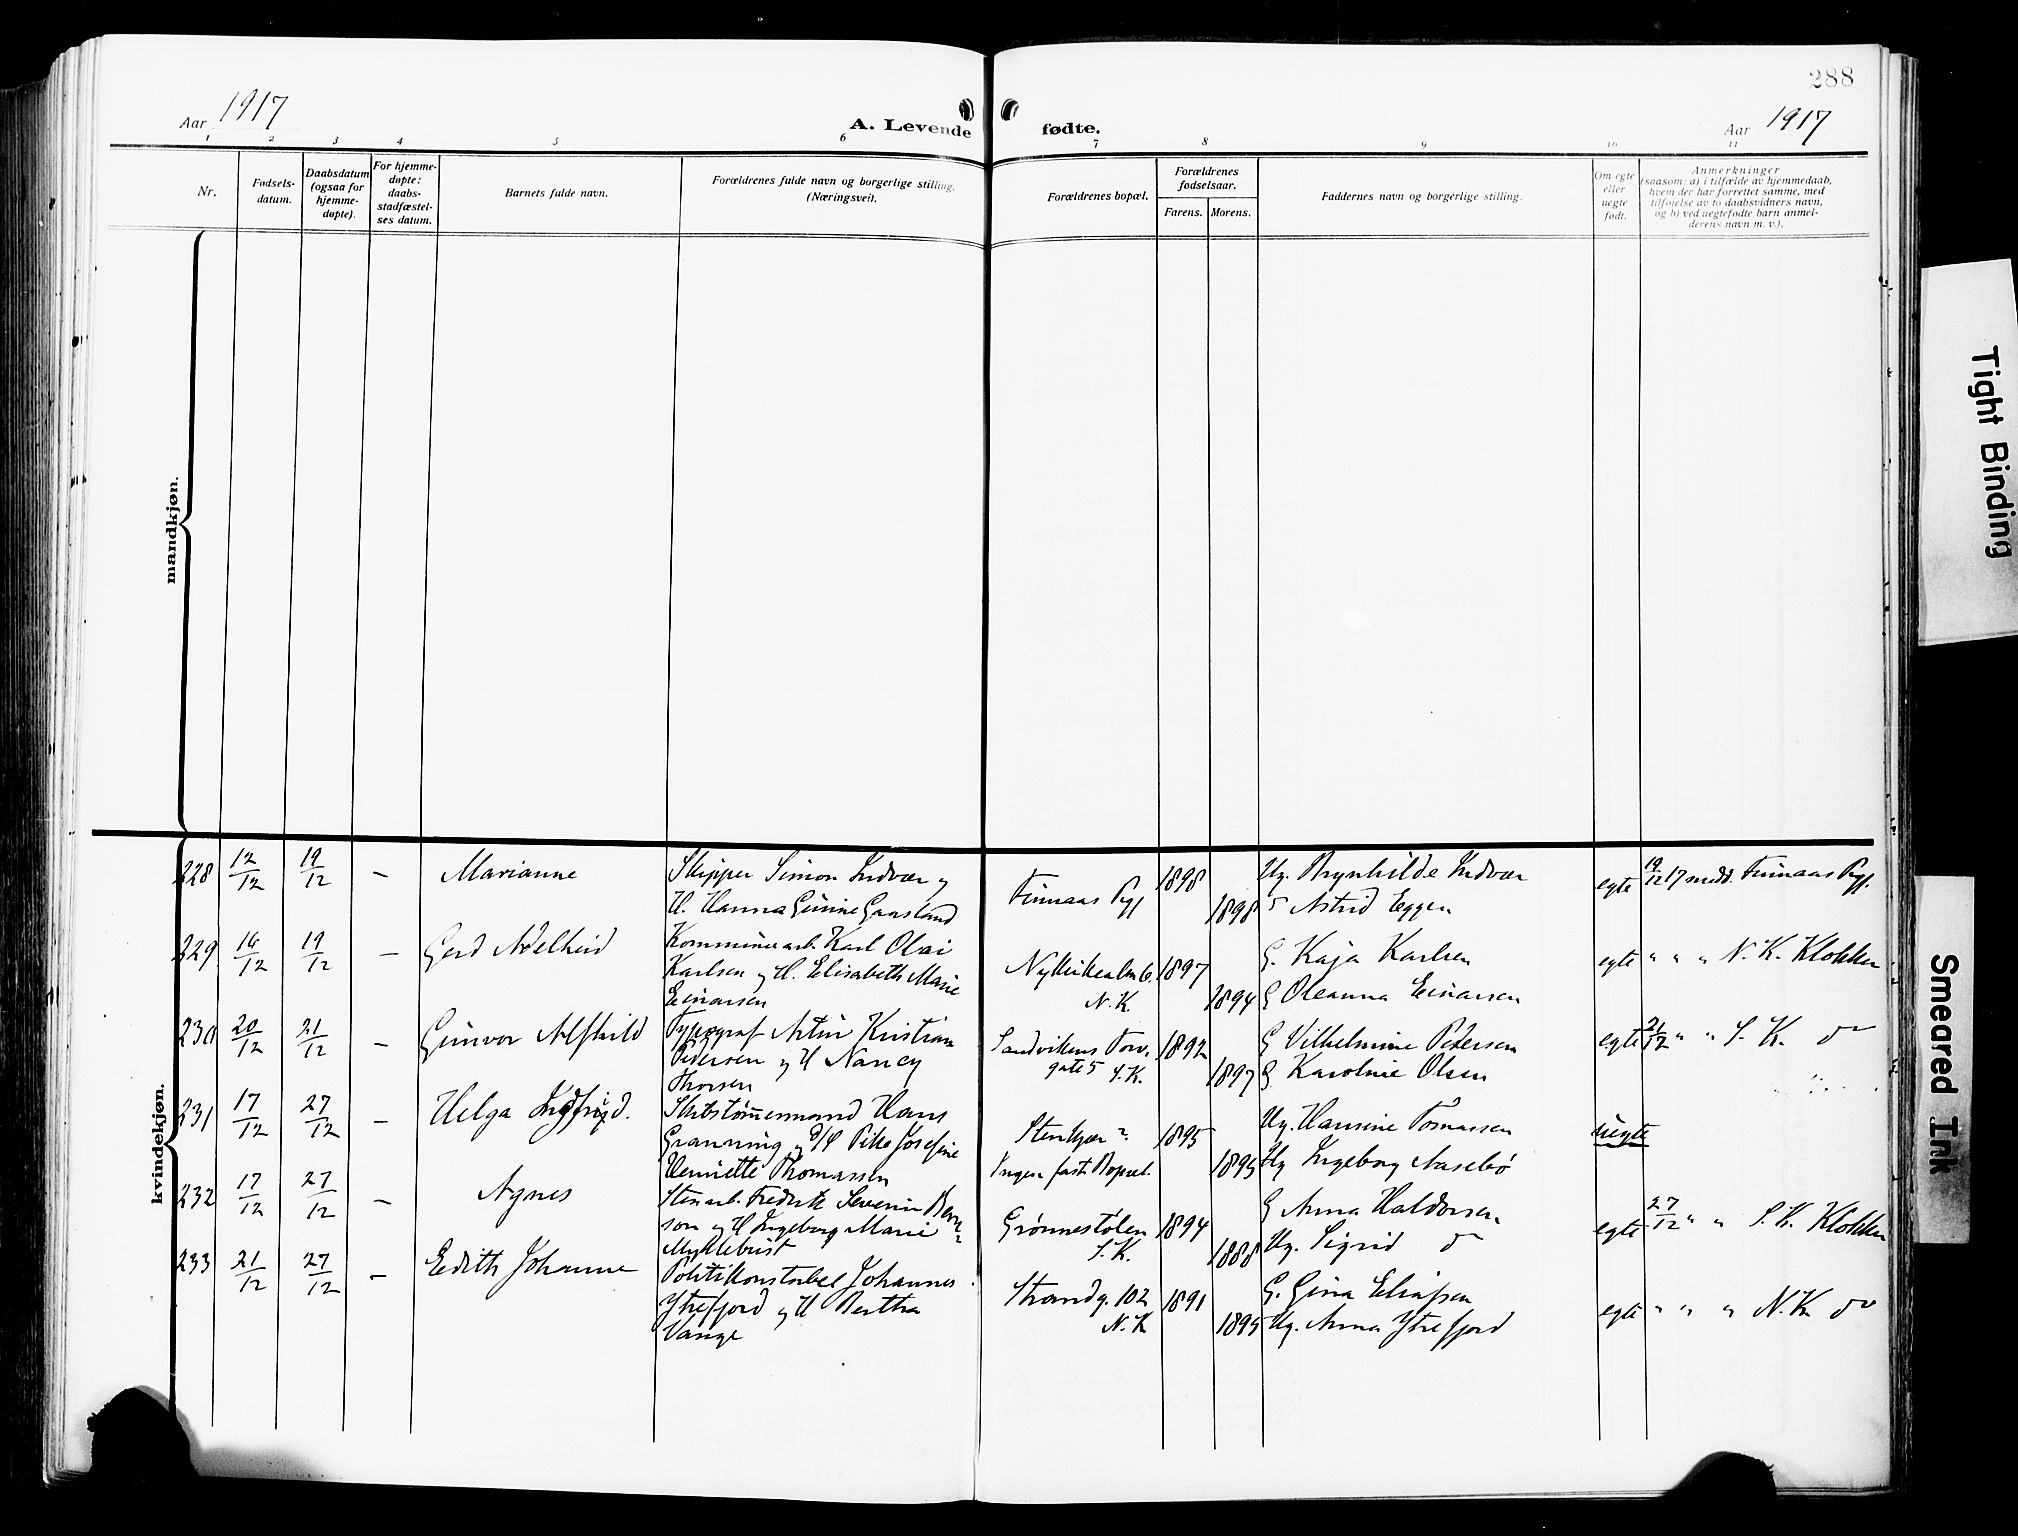 288
Aar 1917
A. Levende fødte.
Aar 1917
1 2 3 4 5 6 7 8 9 10 11
Nr.
Fødsels-
datum.
Daabsdatum
(ogsaa for
hjemme-
døpte).
For hjemme-
døpte:
daabs-
stadfæstel-
ses datum.
Barnets fulde navn.
Forældrenes fulde navn og borgerlige stilling.
(Næringsvei).
Forældrenes bopæl.
Forældrenes
fødselsaar.
Farens. Morens.
Faddernes navn og borgerlige stilling.
Om egte
eller
uegte
født.
Anmerkninger
(saasom: a) i tilfælde av hjemmedaab,
hvem der har forrettet samme, med
tilføielse av to daabsvidners navn,
og b) ved uegtefødte barn anmel-
derens navn m. v.).
mandkjøn.
kvindekjøn.
228 12/12 19/12 – Marianne
Skipper Simon Indvær og
H. Hanna Gurine Gaasland
Finnaas Pgj
1898
1898
Ug. Brynhilde Indvær
" Astrid Eggen
egte 19/12 17 medd. Finnaas Pgj.
229 16/12 19/12 – Gerd Adelheid
Kommunearb. Karl Olai
Karlsen og H. Elisabeth Marie
Einarsen
N.K.
1897
1894
G. Kaja Karlsen
G Oleanna Einarsen
egte " " " N.K. Klokker
230 20/12 21/12 – Gunvor Alfhild
Typograf Artur Kristian
Pedersen og H Nancy
Thorsen
Sandvikens Torv.
gate 5 S.K.
1892
1897
G Vilhelmine Pedersen
G Karoline Olsen
egte 21/12 " " S.K. do
231 17/12 27/12 – Helga Ingfrid.
Skibstømmermand Hans
Granning og Pike Josefine
Henriette Thomassen
Stenkjær ?
Ingen fast Bopæl.
1895
1895
Ug. Hansine Tomassen
Ug Ingeborg Aasebø
uegte
232 17/12 27/12 – Agnes
Stenarb. Fredrik Severin Bern-
son og H Ingeborg Marie
Myklebust
Grønnestølen
S.K.
1894
1888
G Anna Haldorsen
Ug. Sigrid do
egte 27/12 " " S.K. Klokker
233 21/12 27/12 – Edith Johanne
Politikonstabel Johannes
Ytrefjord og H Bertha
Vange
Strandg. 102
N.K
1891
1895
G. Gina Eliassen
Ug. Anna Ytrefjord
egte " " " N.K do
Tight Binding
Smeared Ink